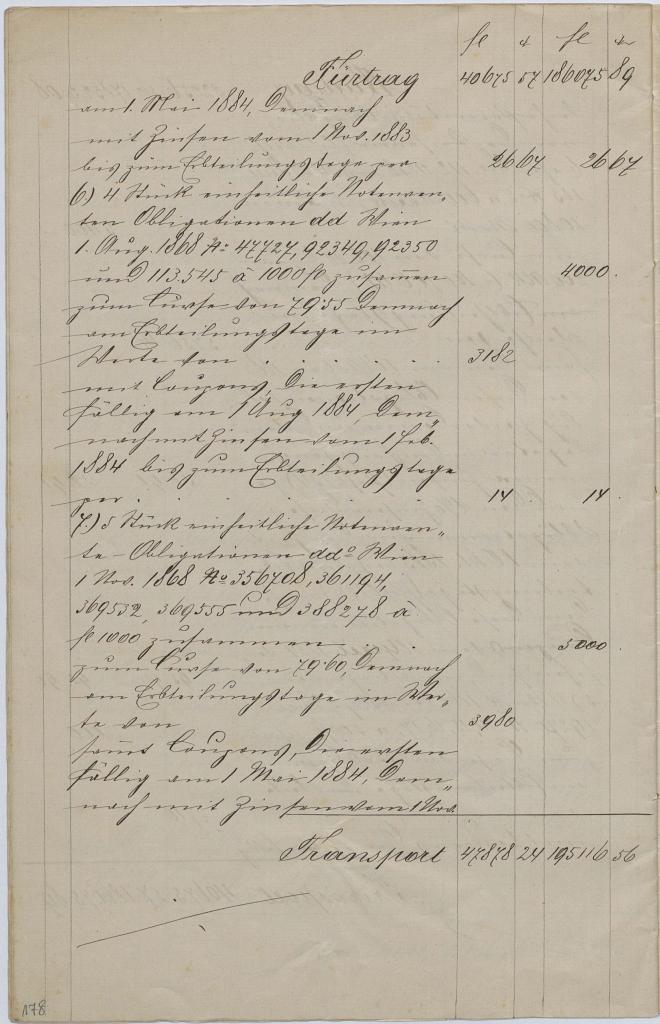 fl kr fl kr
Fürtrag 40675 57 186075 89
am 1. Mai 1884, demnach
mit Zinsen vom 1 Nov. 1883
bis zum Erbteilungstage per 26 67 26 67
6.) 4 Stück einheitliche Notenren„
ten Obligationen dd Wien
1. Aug. 1868 No 47727, 92349, 92350
und 113.545 à 1000 fl zusam̄en 4000 .
zum Curse von 79·55 demnach
am Erbteilungstage im
Werte von . . . . . . 3182
mit Coupons, die ersten
fällig am 1 Aug 1884, dem„
nach mit Zinsen vom 1 Feb.
1884 bis zum Erbteilungstage
per . . . . . . 14 . 14 .
7.) 5 Stück einheitliche Notenren„
te-Obligationen ddo Wien
1 Nov. 1868 No 356708, 361194,
369532, 369555 und 388278 à
fl 1000 zusammen . . 5000 .
zum Curse von 79·60, demnach
am Erbteilungstage im Wer„
te von 3980
sam̄t Coupons, die ersten
fällig am 1 Mai 1884, dem„
nach mit Zinsen vom 1 Nov.
Transport 47878 24 195116 56
178